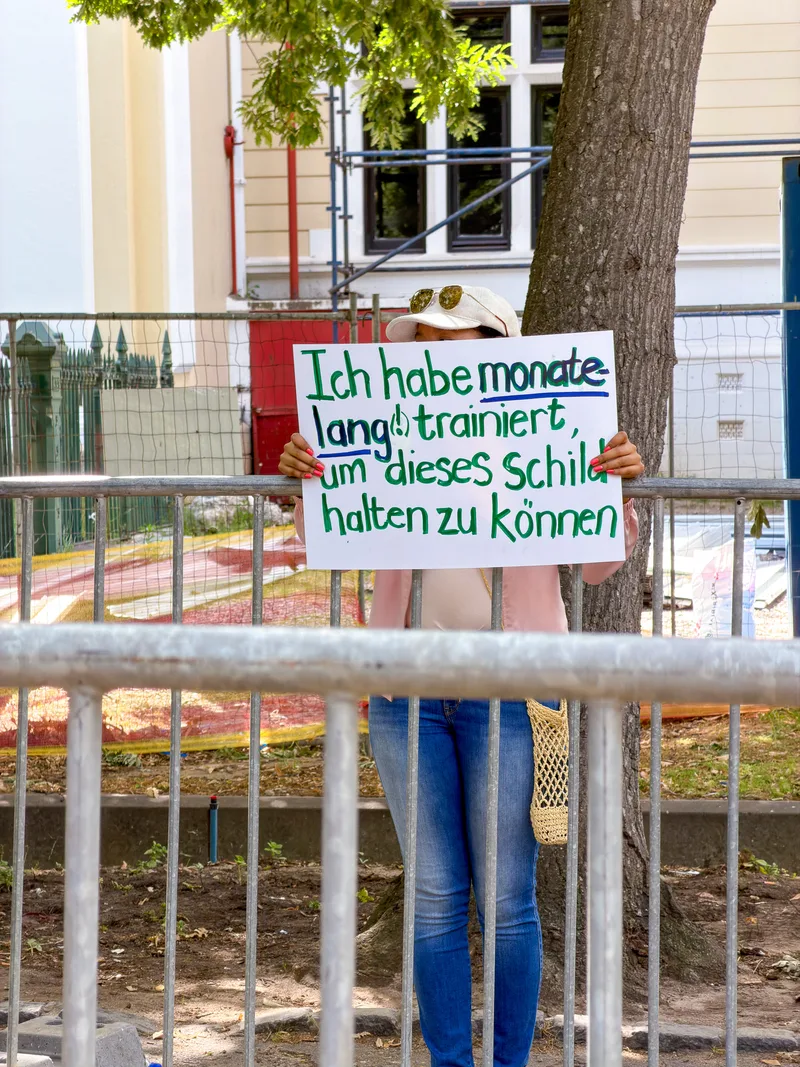 Ich habe monate-
lang(!) trainiert,
um dieses Schild
halten zu können